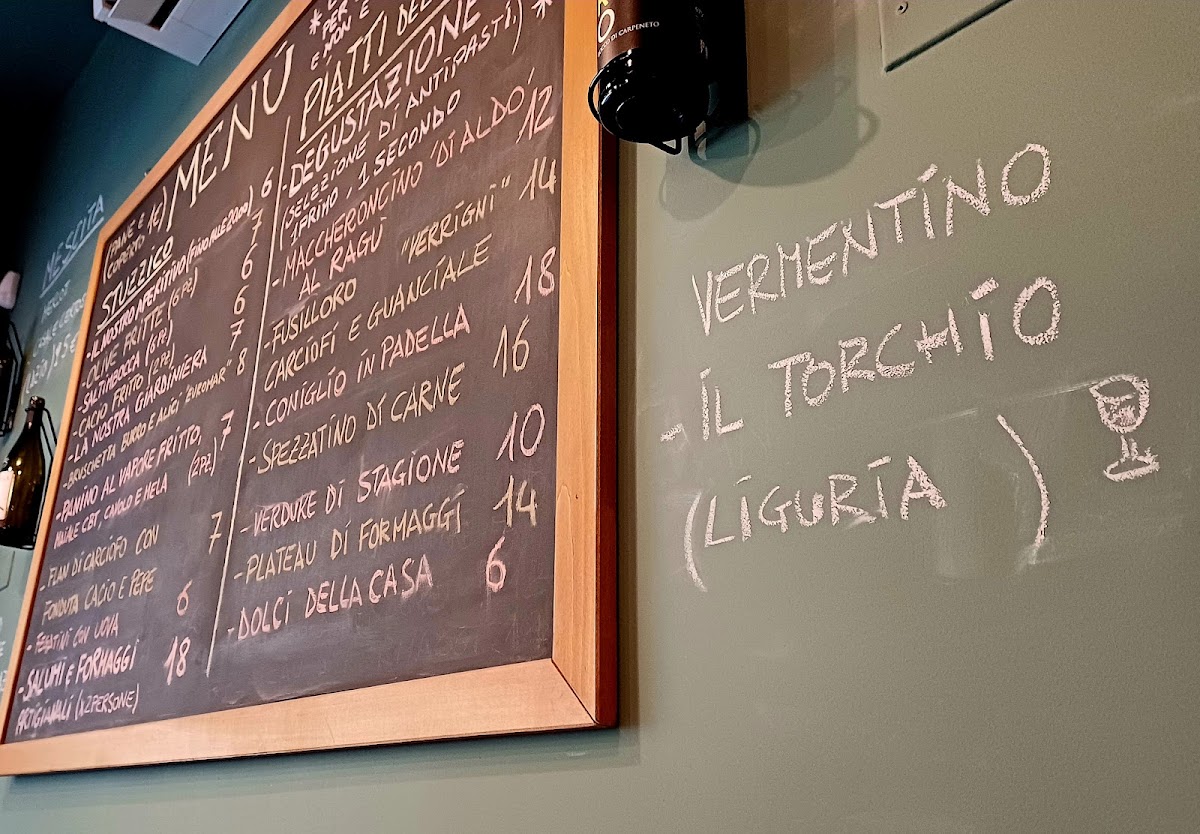 MESCITA
MERLOT
MENÚ
(PANE E
COPERTO 1€)
STUZZICO
- IL NOSTRO APERITIVO (FINO ALLE 20:00) 6
- OLIVE FRITTE (6 PZ) 7
- SALTIMBOCCA (5 PZ) 6
- CACIO FRITTO (2 PZ) 6
- LA NOSTRA GIARDINIERA 7
- BRUSCHETTA BURRO E ALICI "EUROMAR" 8
- PANINO AL VAPORE FRITTO, 7
MAIALE CBT, CAVOLO E MELA (2PZ)
- FLAN DI CARCIOFO CON 7
FONDUTA CACIO E PEPE
- FEGATINI CON UOVA 6
- SALUMI E FORMAGGI 18
ARTIGIANALI (X2 PERSONE)
* E NON
PIATTI
- DEGUSTAZIONE
(SELEZIONE DI ANTIPASTI,
1 PRIMO, 1 SECONDO) *
- MACCHERONCINO 'DI ALDO' 12
AL RAGÙ
- FUSILLORO "VERRIGNI" 14
CARCIOFI E GUANCIALE
- CONIGLIO IN PADELLA 18
- SPEZZATINO DI CARNE 16
- VERDURE DI STAGIONE 10
- PLATEAU DI FORMAGGI 14
- DOLCI DELLA CASA 6
DI CARPENETO
VERMENTINO
- IL TORCHIO
(LIGURIA )